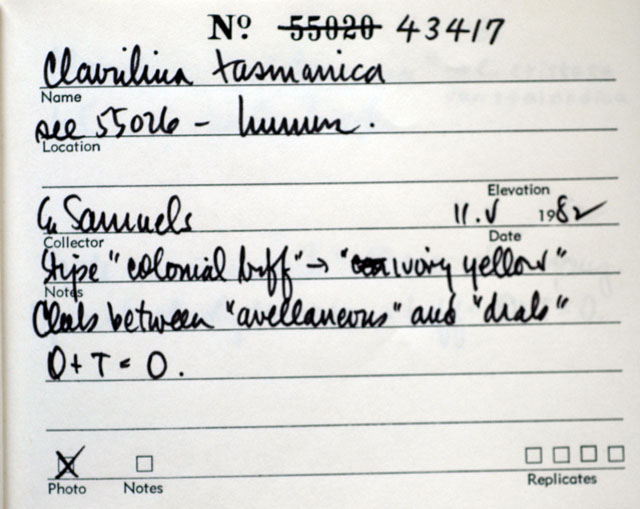 Nº 55020 43417
Clavulina tasmanica
Name
see 55026 - humus.
Location
Elevation
G Samuels 11.V 1982
Collector Date
Stipe "colonial buff" → "ivory yellow"
Notes
Clubs between "avellaneous" and "drab"
O + T = O.
Photo Notes Replicates